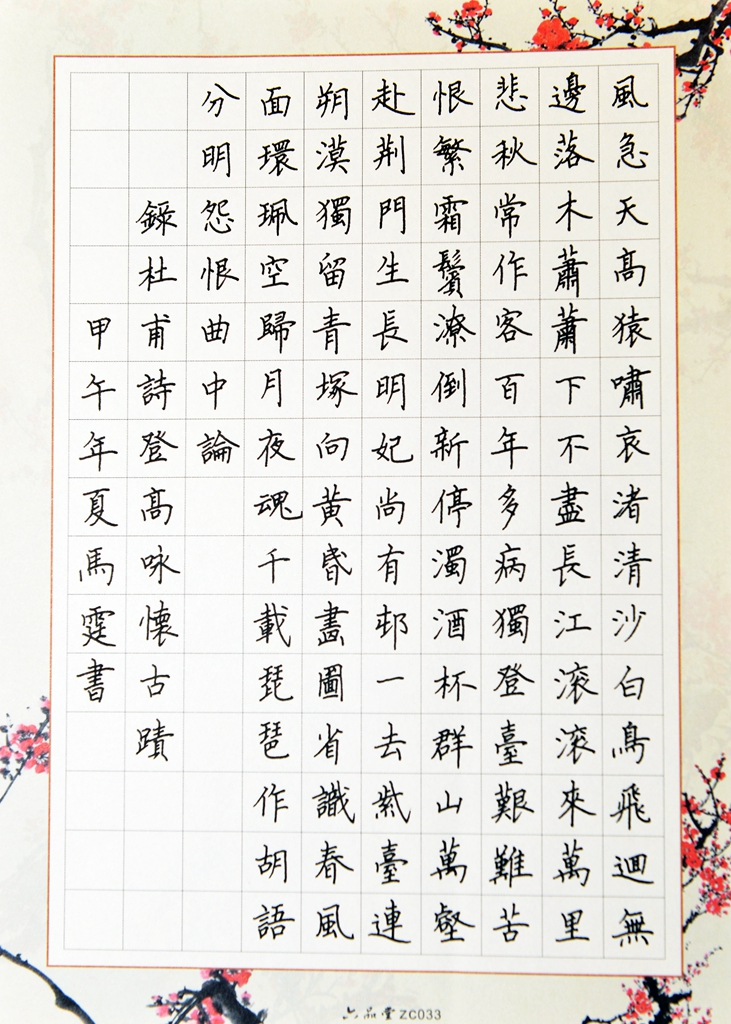 風急天高猿嘯哀渚清沙白鳥飛迴無
邊落木蕭蕭下不盡長江滾滾來萬里
悲秋常作客百年多病獨登臺艱難苦
恨繁霜鬢潦倒新停濁酒杯群山萬壑
赴荆門生長明妃尚有邨一去紫臺連
朔漠獨留青塚向黃昏畫圖省識春風
面環珮空歸月夜魂千載琵琶作胡語
分明怨恨曲中論
錄杜甫詩登高咏懷古蹟
甲午年夏馬霆書
六品堂 ZC033